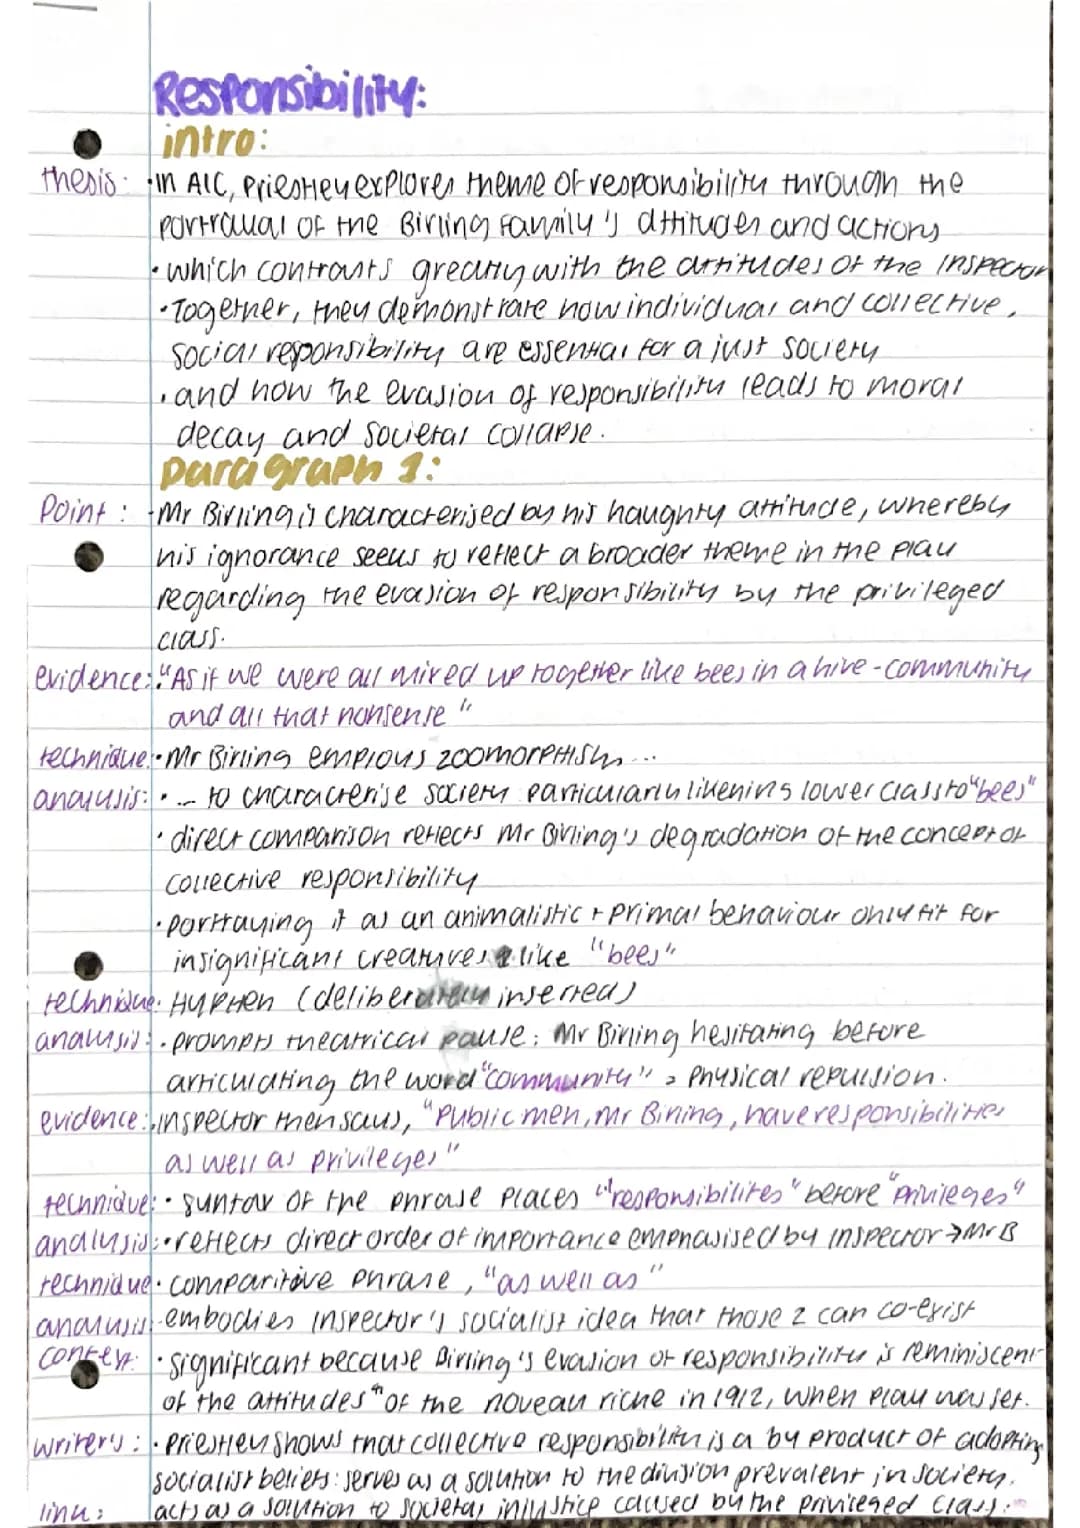 Responsibility:
intro:
thesis: · In AIC, Priestley explores theme of responsibility through the
portrayal of the Birling Family's attitudes and actions
· which contrasts greatly with the attitudes of the Inspector
· Together, they demonstrate how individual and collective,
social responsibility are essential for a just society
· and how the evasion of responsibility leads to moral
decay and societal collapse.
paragraph 1:
Point: · Mr Birling is characterised by his haughty attitude, whereby
his ignorance seeks to reflect a broader theme in the play
regarding the evasion of responsibility by the privileged
class.
evidence: · "As if we were all mixed up together like bees in a hive - community
and all that nonsense"
technique: · Mr Birling employs zoomorphism ...
analysis: · ... to characterise society particularly likening lower class to "bees"
· direct comparison reflects Mr Birling's degradation of the concept of
collective responsibility
· portraying it as an animalistic + primal behaviour only fit for
insignificant creatures like "bees"
technique: Hyphen (deliberately inserted)
analysis: · prompts theatrical pause: Mr Birling hesitating before
articulating the word "community" → physical repulsion.
evidence: · Inspector then says, "Public men, Mr Birling, have responsibilities
as well as privileges"
technique: · syntax of the phrase places "responsibilites" before "privileges"
analysis: · reflects direct order of importance emphasised by Inspector → Mr B
technique · comparitive phrase, "as well as"
analysis · embodies Inspector's socialist idea that those 2 can co-exist
context: · significant because Birling's evasion of responsibility is reminiscent
of the attitudes of the noveau riche in 1912, when play was set.
writer's: · Priestley shows that collective responsibility is a by product of adopting
socialist beliefs: serves as a solution to the division prevalent in society.
link: acts as a solution to societal injustice caused by the privileged class.